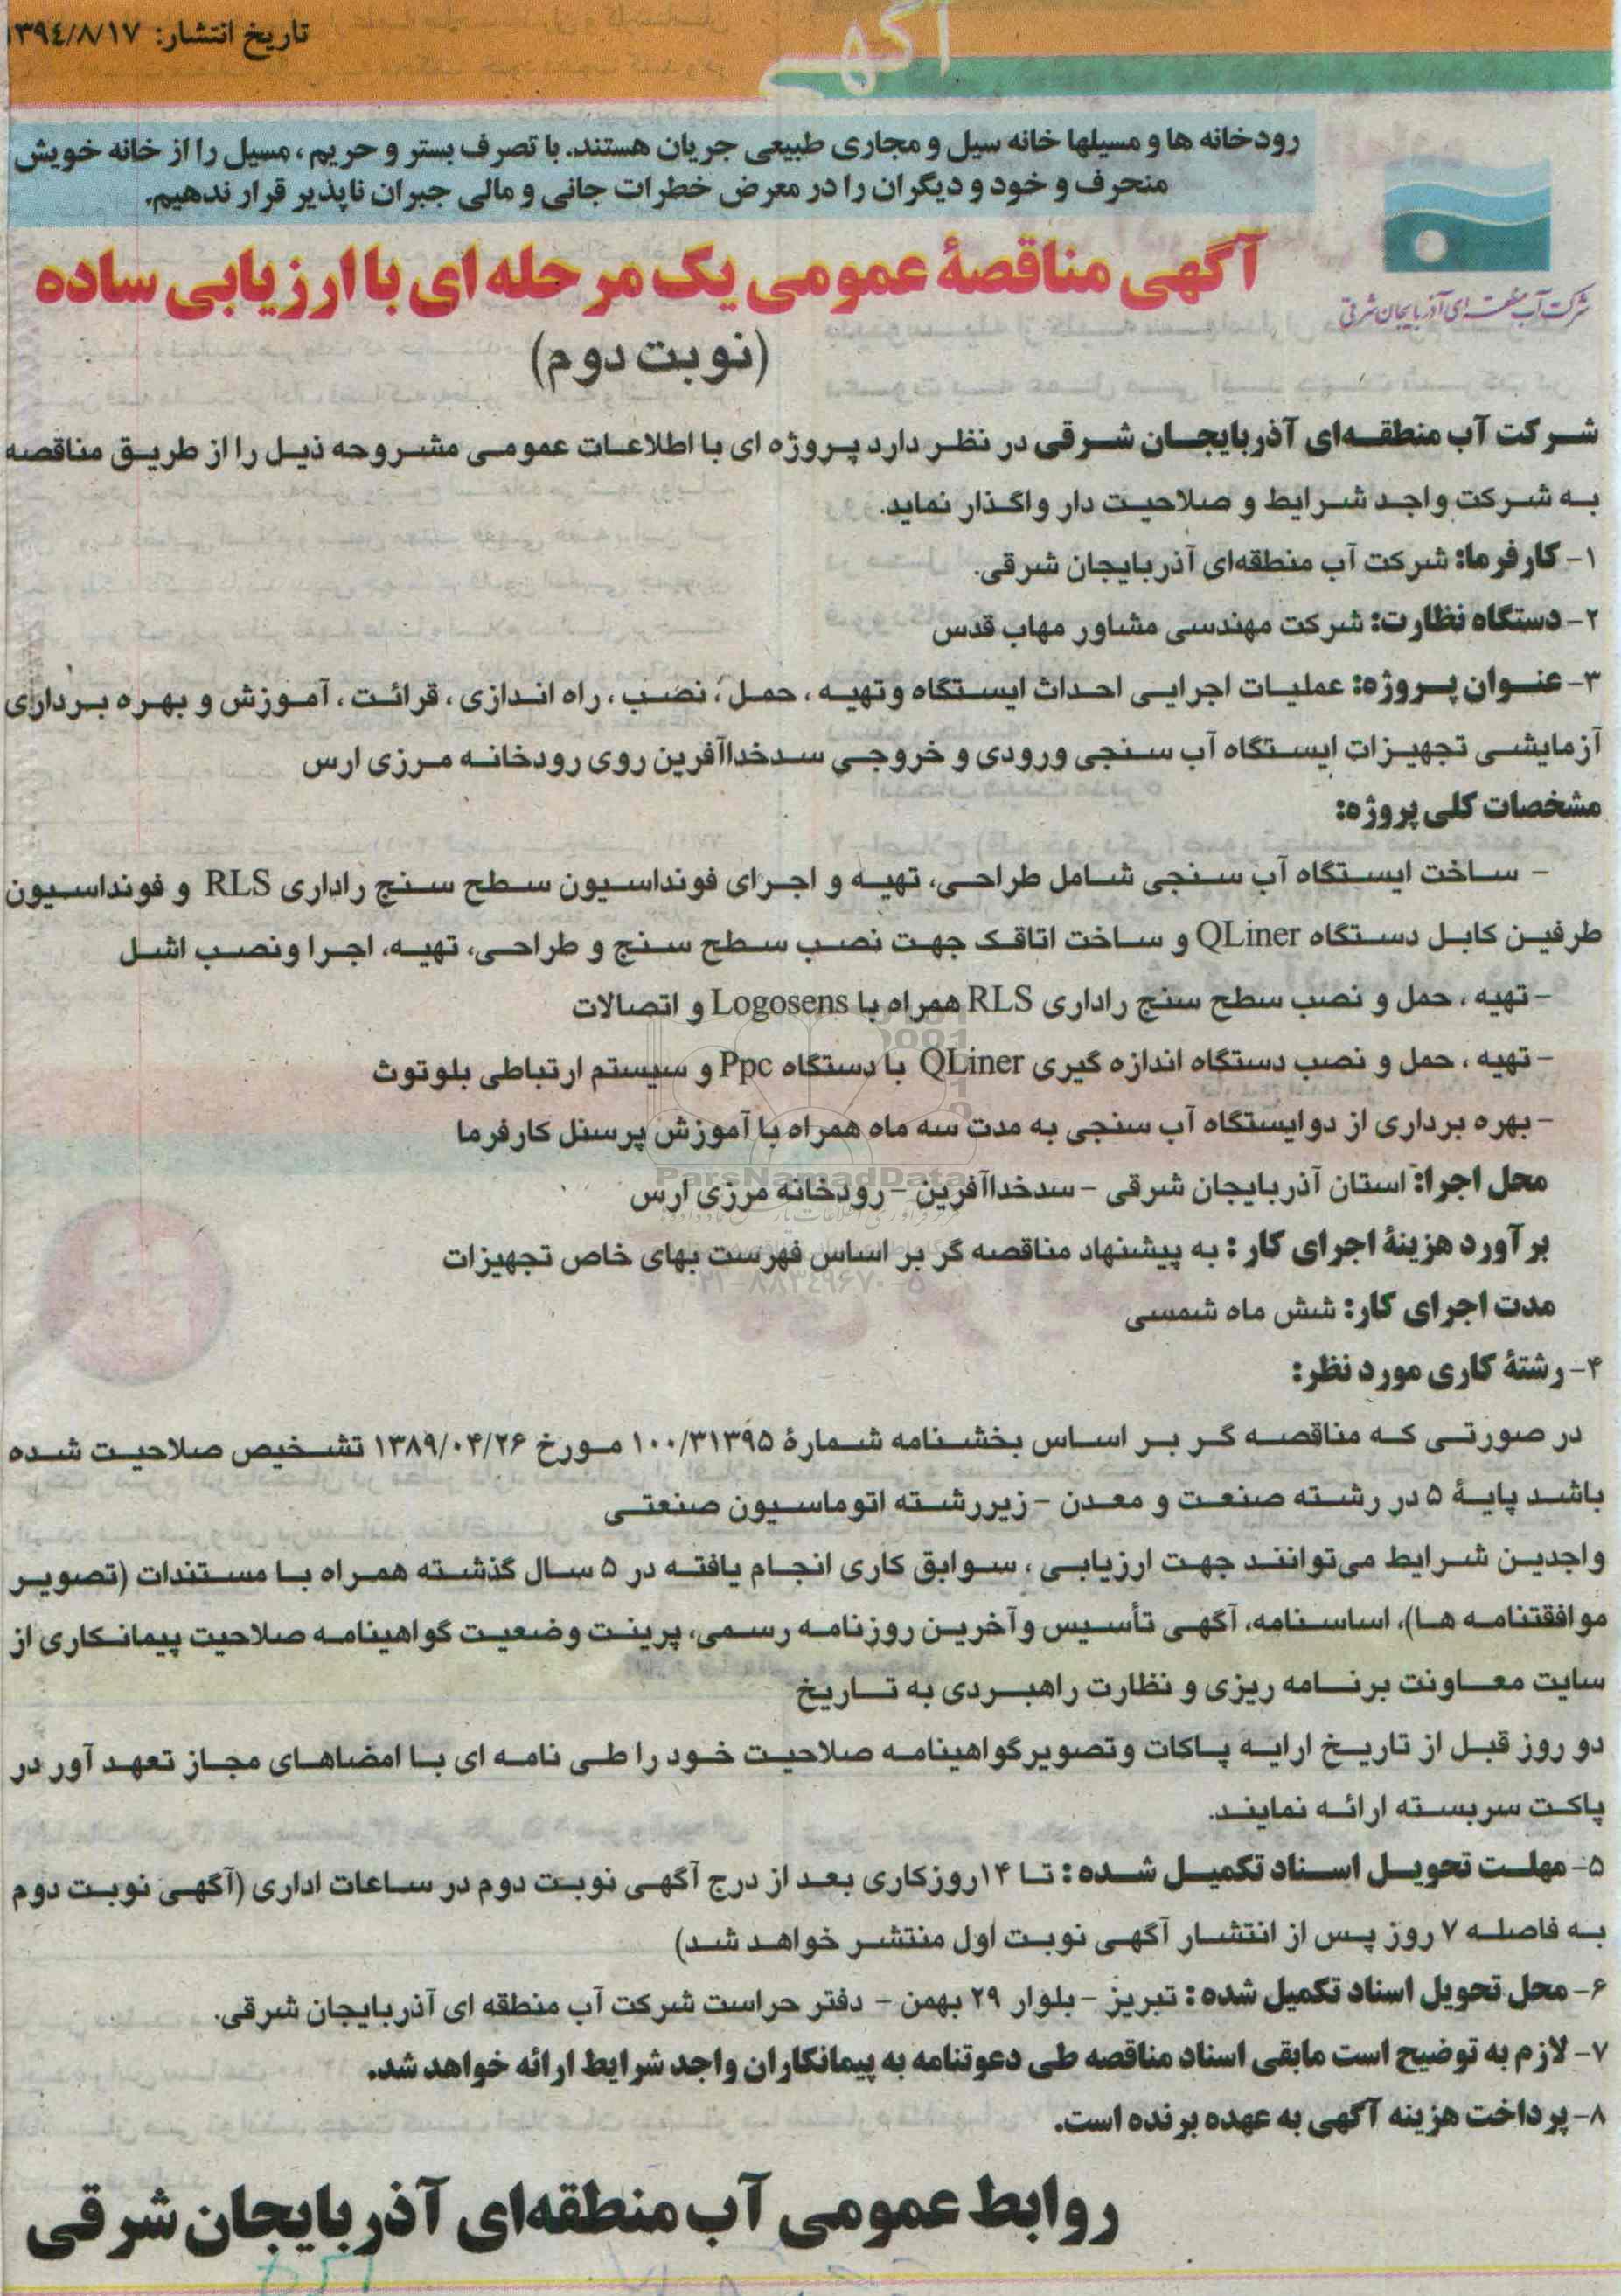 آگهی
تاریخ انتشار: ۱۳۹٤/۸/۱۷
رودخانه ها و مسیلها خانه سیل و مجاری طبیعی جریان هستند. با تصرف بستر و حریم ، مسیل را از خانه خویش
منحرف و خود و دیگران را در معرض خطرات جانی و مالی جبران ناپذیر قرار ندهیم.
شرکت آب منطقه ای آذربایجان شرقی
آگهی مناقصهٔ عمومی یک مرحله ای با ارزیابی ساده
(نوبت دوم)
شرکت آب منطقه‌ای آذربایجان شرقی در نظر دارد پروژه ای با اطلاعات عمومی مشروحه ذیل را از طریق مناقصه
به شرکت واجد شرایط و صلاحیت دار واگذار نماید.
۱- کارفرما: شرکت آب منطقه‌ای آذربایجان شرقی.
۲- دستگاه نظارت: شرکت مهندسی مشاور مهاب قدس
۳- عنوان پروژه: عملیات اجرایی احداث ایستگاه وتهیه ، حمل ، نصب ، راه اندازی ، قرائت ، آموزش و بهره برداری
آزمایشی تجهیزات ایستگاه آب سنجی ورودی و خروجی سدخداآفرین روی رودخانه مرزی ارس
مشخصات کلی پروژه:
- ساخت ایستگاه آب سنجی شامل طراحی، تهیه و اجرای فونداسیون سطح سنج راداری RLS و فونداسیون
طرفین کابل دستگاه QLiner و ساخت اتاقک جهت نصب سطح سنج و طراحی، تهیه، اجرا ونصب اشل
- تهیه ، حمل و نصب سطح سنج راداری RLS همراه با Logosens و اتصالات
- تهیه ، حمل و نصب دستگاه اندازه گیری QLiner با دستگاه Ppc و سیستم ارتباطی بلوتوث
- بهره برداری از دوایستگاه آب سنجی به مدت سه ماه همراه با آموزش پرسنل کارفرما
ParsNamadData
محل اجرا: استان آذربایجان شرقی - سدخداآفرین - رودخانه مرزی ارس
برآورد هزینهٔ اجرای کار : به پیشنهاد مناقصه گر بر اساس فهرست بهای خاص تجهیزات
۰۲۱-۸۸۳٤۹۶۷۰-۵
مدت اجرای کار: شش ماه شمسی
۴- رشتهٔ کاری مورد نظر:
در صورتی که مناقصه گر بر اساس بخشنامه شمارهٔ ۱۰۰/۳۱۳۹۵ مورخ ۱۳۸۹/۰۴/۲۶ تشخیص صلاحیت شده
باشد پایهٔ ۵ در رشته صنعت و معدن - زیررشته اتوماسیون صنعتی
واجدین شرایط می‌توانند جهت ارزیابی ، سوابق کاری انجام یافته در ۵ سال گذشته همراه با مستندات (تصویر
موافقتنامه ها)، اساسنامه، آگهی تأسیس وآخرین روزنامه رسمی، پرینت وضعیت گواهینامه صلاحیت پیمانکاری از
سایت معاونت برنامه ریزی و نظارت راهبردی به تاریخ
دو روز قبل از تاریخ ارایه پاکات وتصویرگواهینامه صلاحیت خود را طی نامه ای با امضاهای مجاز تعهد آور در
پاکت سربسته ارائه نمایند.
۵- مهلت تحویل اسناد تکمیل شده : تا ۱۴روزکاری بعد از درج آگهی نوبت دوم در ساعات اداری (آگهی نوبت دوم
به فاصله ۷ روز پس از انتشار آگهی نوبت اول منتشر خواهد شد)
۶- محل تحویل اسناد تکمیل شده : تبریز - بلوار ۲۹ بهمن - دفتر حراست شرکت آب منطقه ای آذربایجان شرقی.
۷- لازم به توضیح است مابقی اسناد مناقصه طی دعوتنامه به پیمانکاران واجد شرایط ارائه خواهد شد.
۸- پرداخت هزینه آگهی به عهده برنده است.
روابط عمومی آب منطقه‌ای آذربایجان شرقی